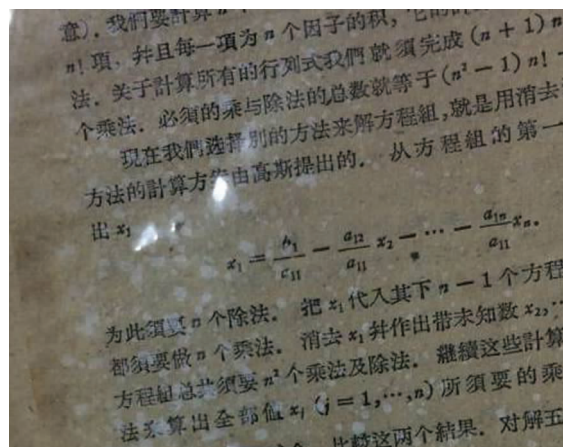 意). 我們要計算
n! 項, 幷且每一項为 n 个因子的积,
法. 关于計算所有的行列式我們就須完成 (n + 1) n
个乘法. 必須的乘与除法的总数就等于 (n² − 1) n!
現在我們选擇別的方法来解方程組, 就是用消去
方法的計算方案由高斯提出的. 从方程組的第一
出 x₁
x₁ = b₁/a₁₁ − a₁₂/a₁₁ x₂ − ⋯ − a₁ₙ/a₁₁ xₙ.
为此須要 n 个除法. 把 x₁ 代入其下 n − 1 个方程
都須要做 n 个乘法. 消去 x₁ 幷作出带未知数 x₂, ⋯
方程組总共須要 n² 个乘法及除法. 繼續这些計算
法来算出全部值 xⱼ (j = 1, ⋯, n) 所須要的乘
比較这两个結果. 对解五